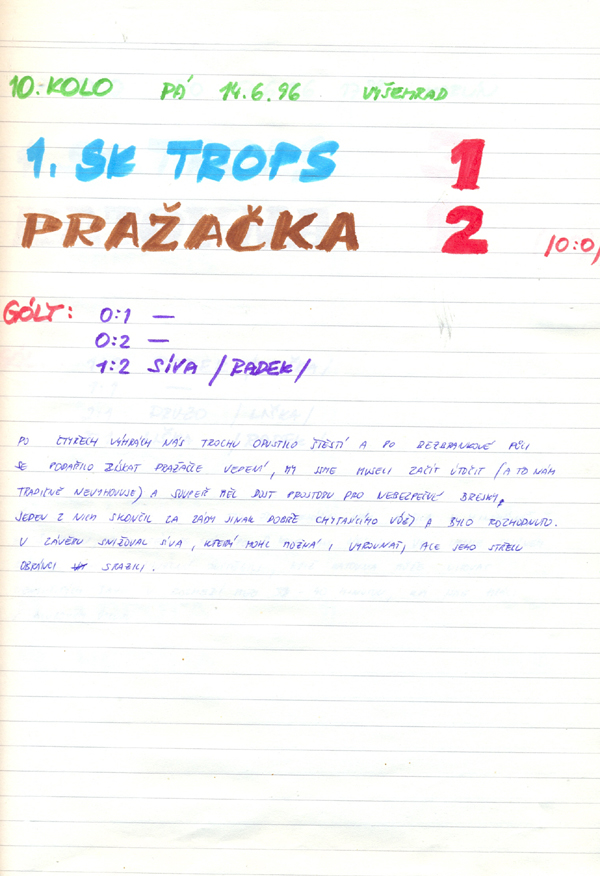 10. KOLO PÁ 14.6.96 VYŠEHRAD
1. SK TROPS 1
PRAŽAČKA 2 /0:0/
GÓLY: 0:1 —
0:2 —
1:2 SÍVA /RADEK/
PO ČTYŘECH VÝHRÁCH NÁS TROCHU OPUSTILO ŠTĚSTÍ A PO BEZBRANKOVÉ PŮLI
SE PODAŘILO ZÍSKAT PRAŽAČCE VEDENÍ, MY JSME MUSELI ZAČÍT ÚTOČIT (A TO NÁM
TRADIČNĚ NEVYHOVUJE) A SOUPEŘ MĚL DOST PROSTORU PRO NEBEZPEČNÉ BREJKY,
JEDEN Z NICH SKONČIL ZA ZÁDY JINAK DOBŘE CHYTAJÍCÍHO A BYLO ROZHODNUTO.
V ZÁVĚRU SNIŽOVAL SÍVA, KTERÝ MOHL MOŽNÁ I VYROVNAT, ALE JEHO STŘELU
OBRÁNCI SRAZILI.